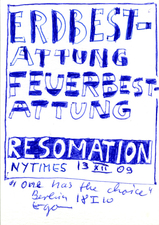 ERDBEST-
ATTUNG
FEUERBEST-
ATTUNG
RESOMATION
NYTIMES 13 XII 09
"one has the choice"
Berlin 18 I 10